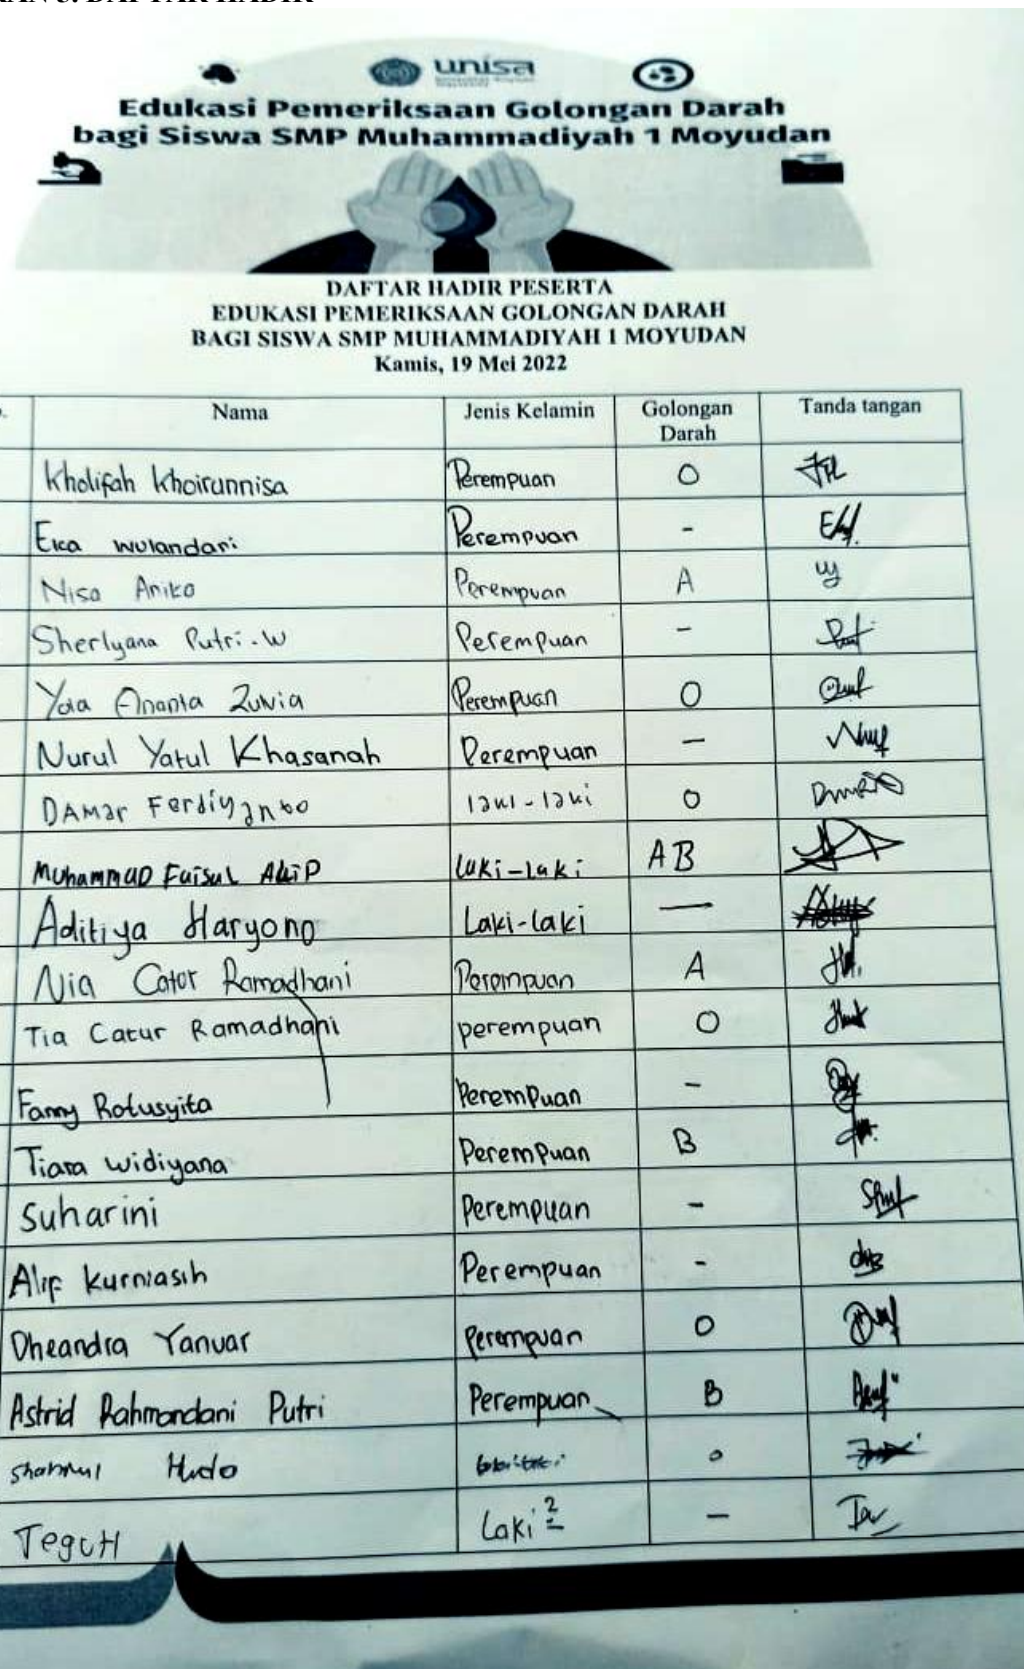 RAN 3. DAFTAR HADIR
unisa
Edukasi Pemeriksaan Golongan Darah
bagi Siswa SMP Muhammadiyah 1 Moyudan
DAFTAR HADIR PESERTA
EDUKASI PEMERIKSAAN GOLONGAN DARAH
BAGI SISWA SMP MUHAMMADIYAH 1 MOYUDAN
Kamis, 19 Mei 2022
Nama Jenis Kelamin Golongan Darah Tanda tangan
Kholifah Khoirunnisa Perempuan O
Erca wulandari Perempuan -
Nisa Anika Perempuan A
Sherlyana Putri.W Perempuan -
Yola Ananta Perempuan O
Nurul Yatul Khasanah Perempuan -
DAMAr Ferdiyanto laki-laki O
MuhammaD Faisul AliP laki-laki AB
Aditiya Haryono Laki-laki -
Nia Catur Ramadhani Perempuan A
Tia Catur Ramadhani perempuan O
Fanny Perempuan -
Tiara widiyana Perempuan B
Suharini Perempuan -
Alif Kurniasih Perempuan -
Dheandra Yanuar perempuan O
Astrid Rahmandani Putri Perempuan B
Huda O
TeguH Laki 2 -